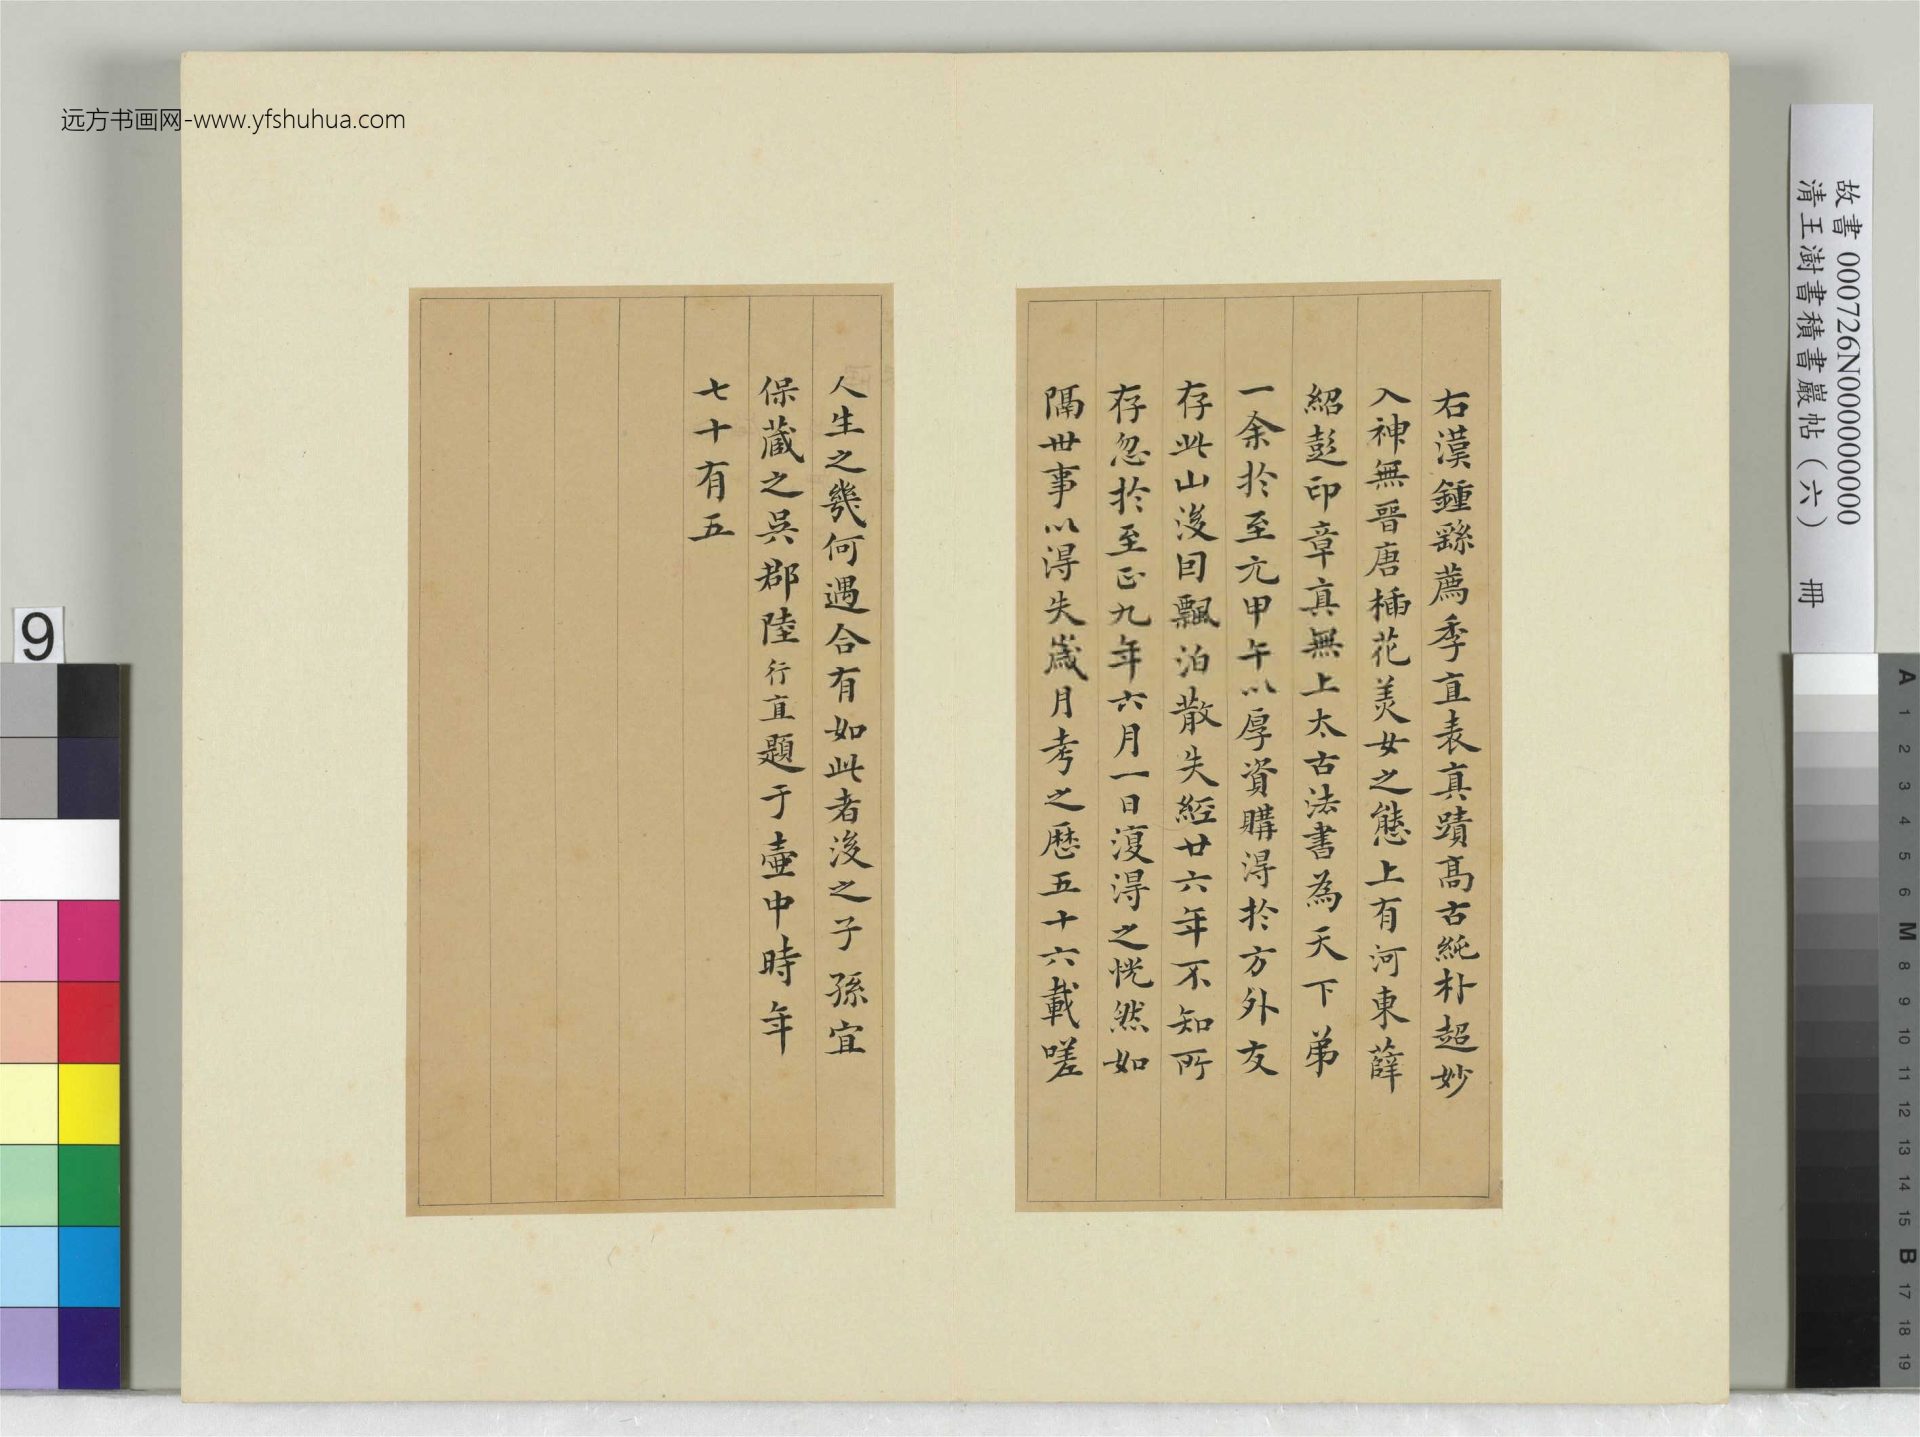 右漢鍾繇薦季直表真蹟高古純朴超妙
入神無晉唐插花美女之態上有河東薛
紹彭印章真無上太古法書為天下第
一余於至元甲午以厚資購得於方外友
存此山後因飄泊散失經廿六年不知所
存忽於至正九年六月一日復得之恍然如
隔世事以得失歲月考之歷五十六載嗟
人生之幾何遇合有如此者後之子孫宜
保藏之吳郡陸行直題于壺中時年
七十有五
远方书画网-www.yfshuhua.com
故書 00726N000000000
清王澍書積書巖帖(六) 冊
9
A 1 2 3 4 5 6 M 8 9 10 11 12 13 14 15 B 17 18 19